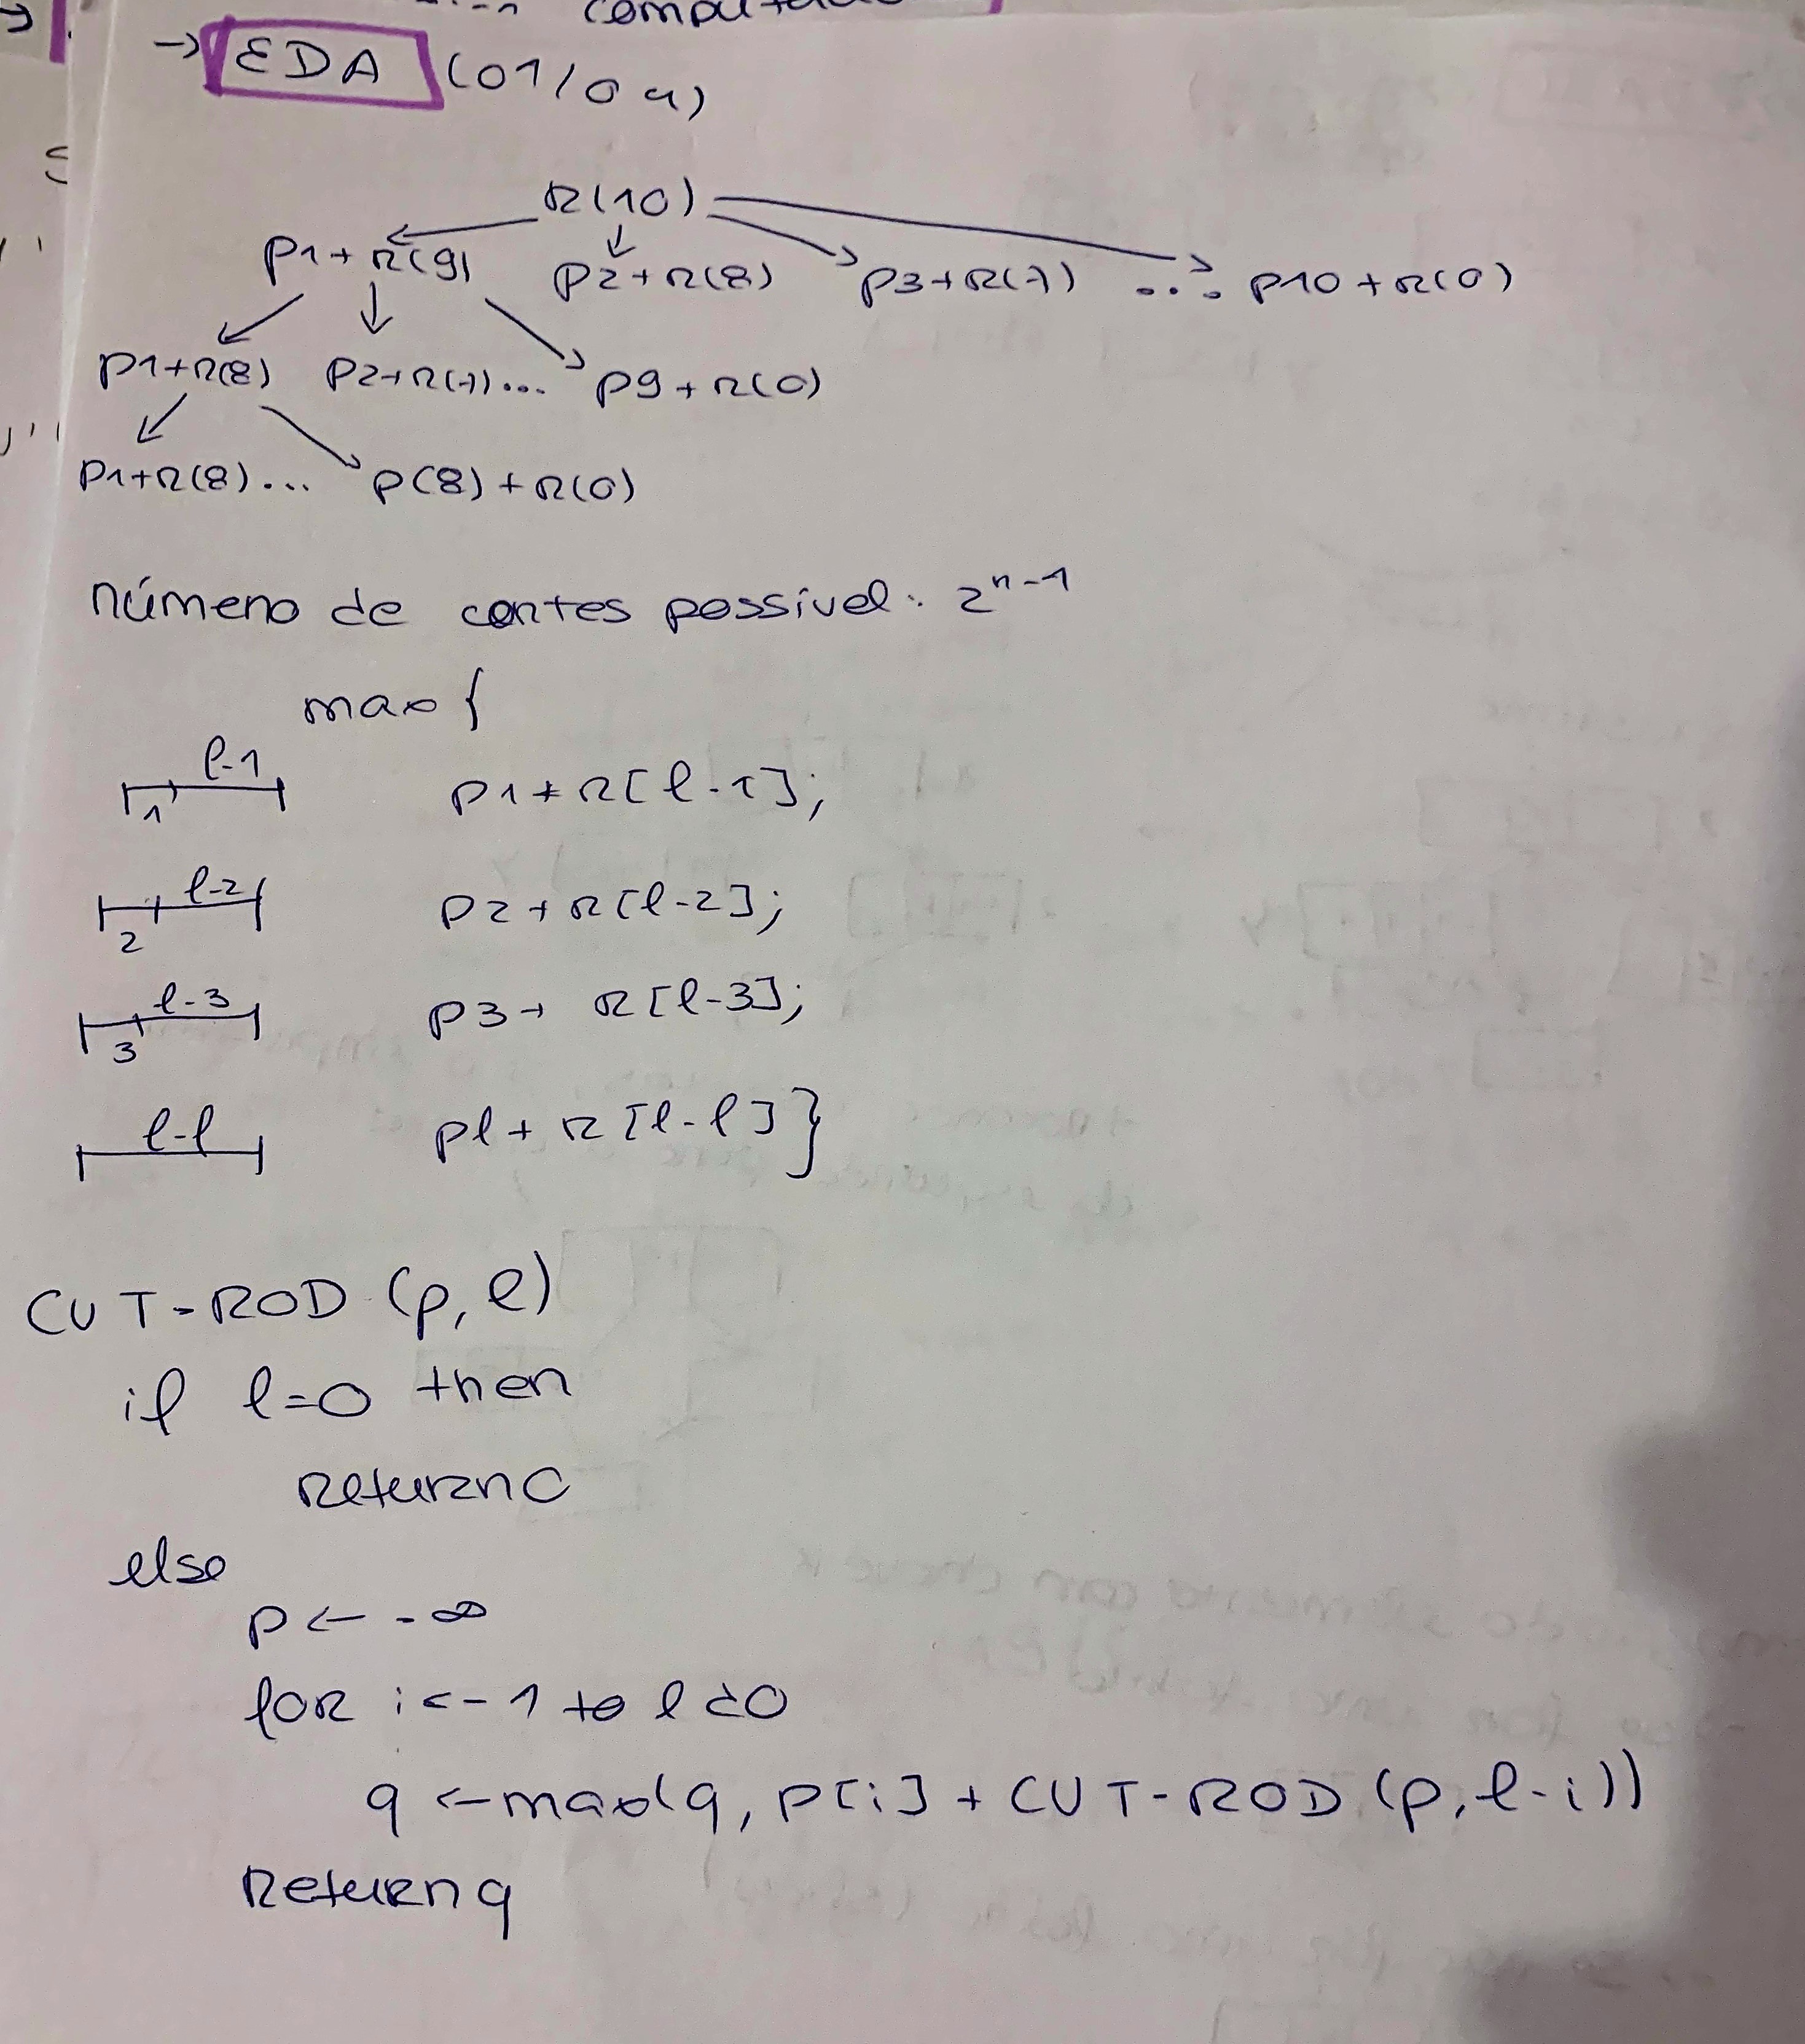 → EDA (01/04)
R(10)
p1+R(9) p2+R(8) p3+R(7) ... p10+R(0)
p1+R(8) p2+R(7)... p9+R(0)
p1+R(8)... p(8)+R(0)
número de cortes possível: 2^n-1
max {
l-1
1
p1+R[l-1];
l-2
2
p2+R[l-2];
l-3
3
p3+ R[l-3];
l-l
pl+R[l-l]}
CUT-ROD (p, l)
if l=0 then
Return 0
else
p ← -∞
for i ← 1 to l do
q ← max(q, p[i] + CUT-ROD (p, l-i))
Return q